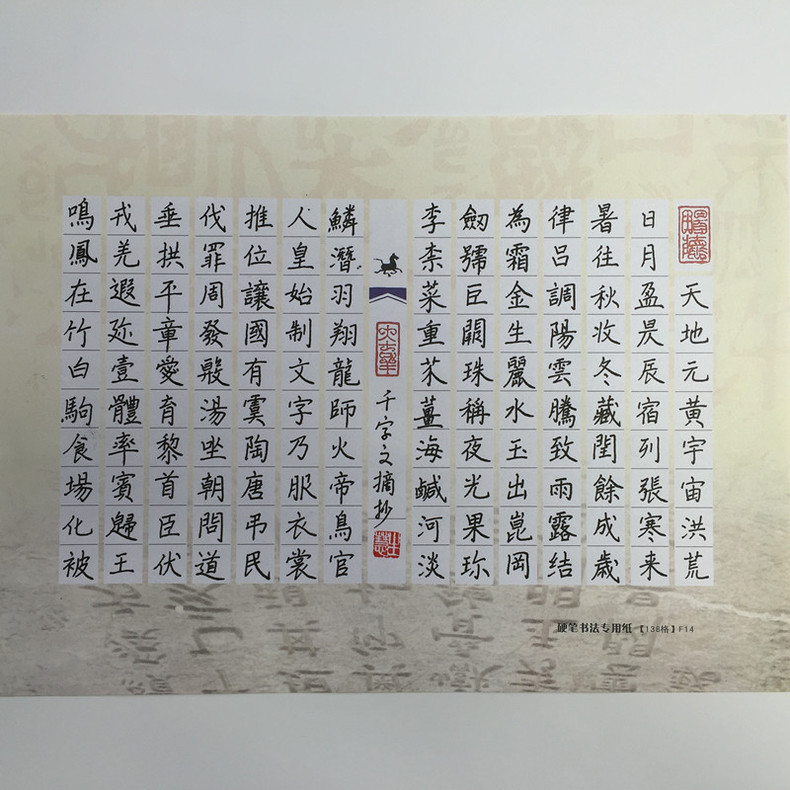 天地元黄宇宙洪荒
日月盈昃辰宿列張寒来
暑往秋收冬藏閏餘成歲
律吕調陽雲騰致雨露结
為霜金生麗水玉出崑岡
劒號巨闕珠稱夜光果珎
李柰菜重芥薑海鹹河淡
千字文摘抄
鱗潛羽翔龍師火帝鳥官
人皇始制文字乃服衣裳
推位讓國有虞陶唐弔民
伐罪周發殷湯坐朝問道
垂拱平章愛育黎首臣伏
戎羌遐迩壹體率賓歸王
鳴鳳在竹白駒食場化被
硬笔书法专用纸【138格】F14